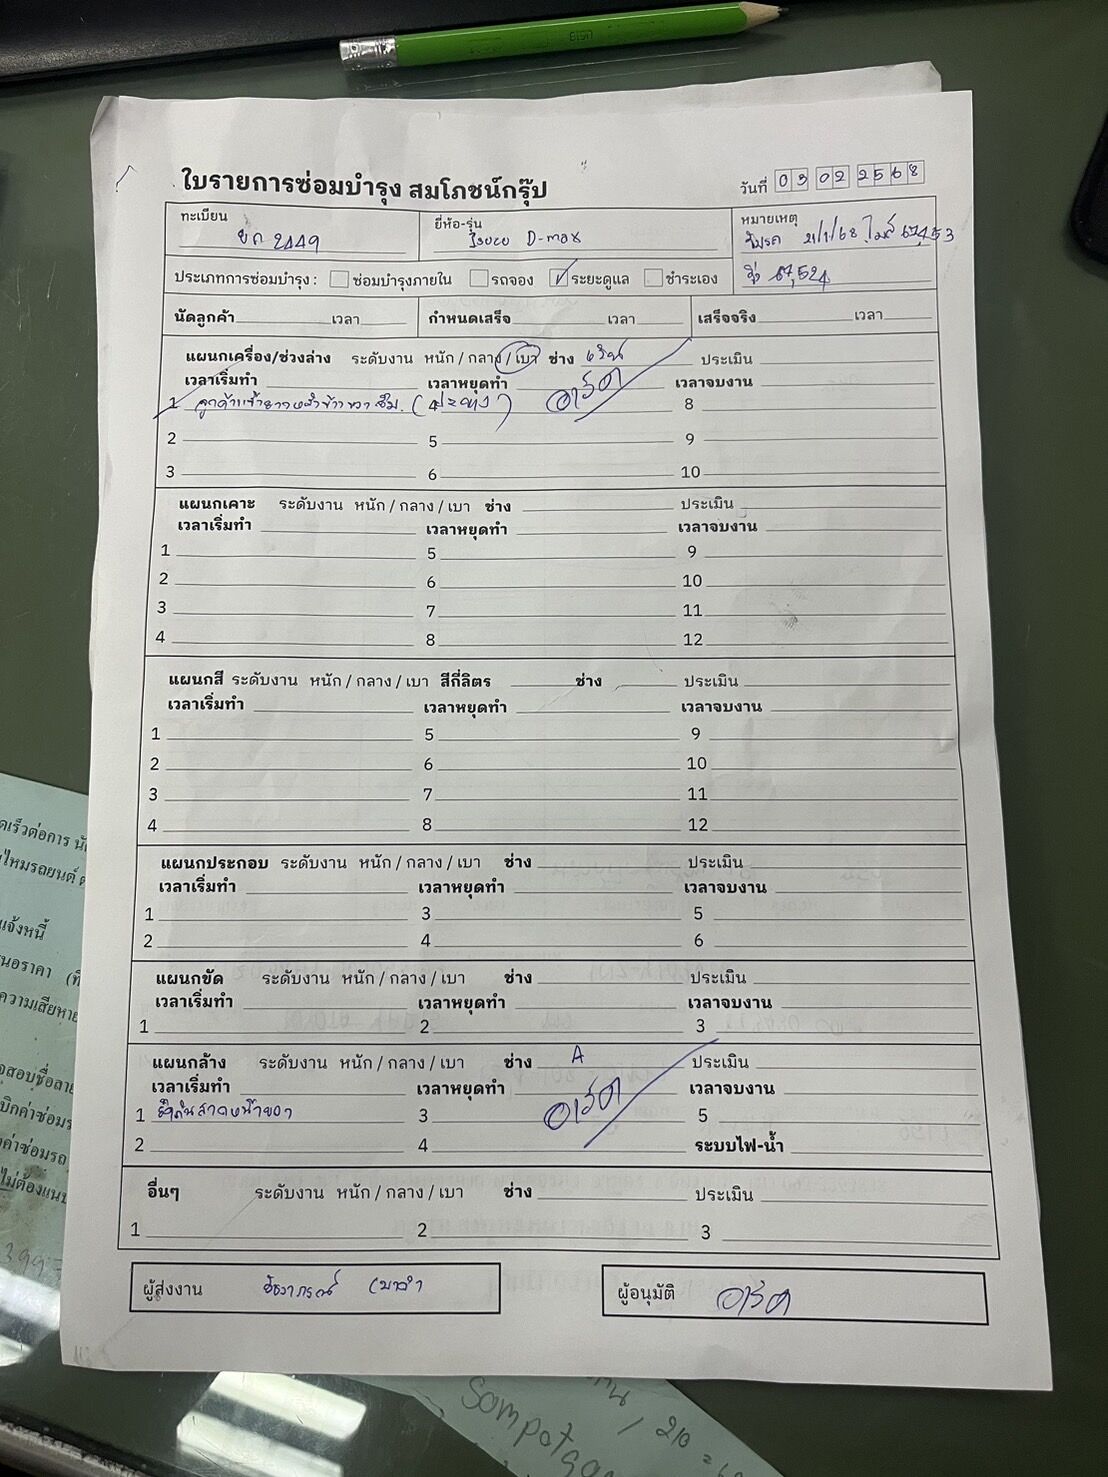 ใบรายการซ่อมบำรุง สมโภชน์กรุ๊ป
วันที่ 03 02 2568
ทะเบียน 2449
ยี่ห้อ-รุ่น Isuzu D-max
หมายเหตุ
รับรถ 21/1/68 ไมล์ 67,453
67,524
ประเภทการซ่อมบำรุง : ซ่อมบำรุงภายใน รถจอง ระยะดูแล ชำระเอง
นัดลูกค้า เวลา กำหนดเสร็จ เวลา เสร็จจริง เวลา
แผนกเครื่อง/ช่วงล่าง ระดับงาน หนัก / กลาง / เบา ช่าง ประเมิน
เวลาเริ่มทำ เวลาหยุดทำ เวลาจบงาน
1 ลูกค้าแจ้ง 4 8
2 5 9
3 6 10
แผนกเคาะ ระดับงาน หนัก / กลาง / เบา ช่าง ประเมิน
เวลาเริ่มทำ เวลาหยุดทำ เวลาจบงาน
1 5 9
2 6 10
3 7 11
4 8 12
แผนกสี ระดับงาน หนัก / กลาง / เบา สีกี่ลิตร ช่าง ประเมิน
เวลาเริ่มทำ เวลาหยุดทำ เวลาจบงาน
1 5 9
2 6 10
3 7 11
4 8 12
แผนกประกอบ ระดับงาน หนัก / กลาง / เบา ช่าง ประเมิน
เวลาเริ่มทำ เวลาหยุดทำ เวลาจบงาน
1 3 5
2 4 6
แผนกขัด ระดับงาน หนัก / กลาง / เบา ช่าง ประเมิน
เวลาเริ่มทำ เวลาหยุดทำ เวลาจบงาน
1 2 3
แผนกล้าง ระดับงาน หนัก / กลาง / เบา ช่าง A ประเมิน
เวลาเริ่มทำ เวลาหยุดทำ เวลาจบงาน
1 3 5
2 4 ระบบไฟ-น้ำ
อื่นๆ ระดับงาน หนัก / กลาง / เบา ช่าง ประเมิน
1 2 3
ผู้ส่งงาน
ผู้อนุมัติ
แจ้งหนี้